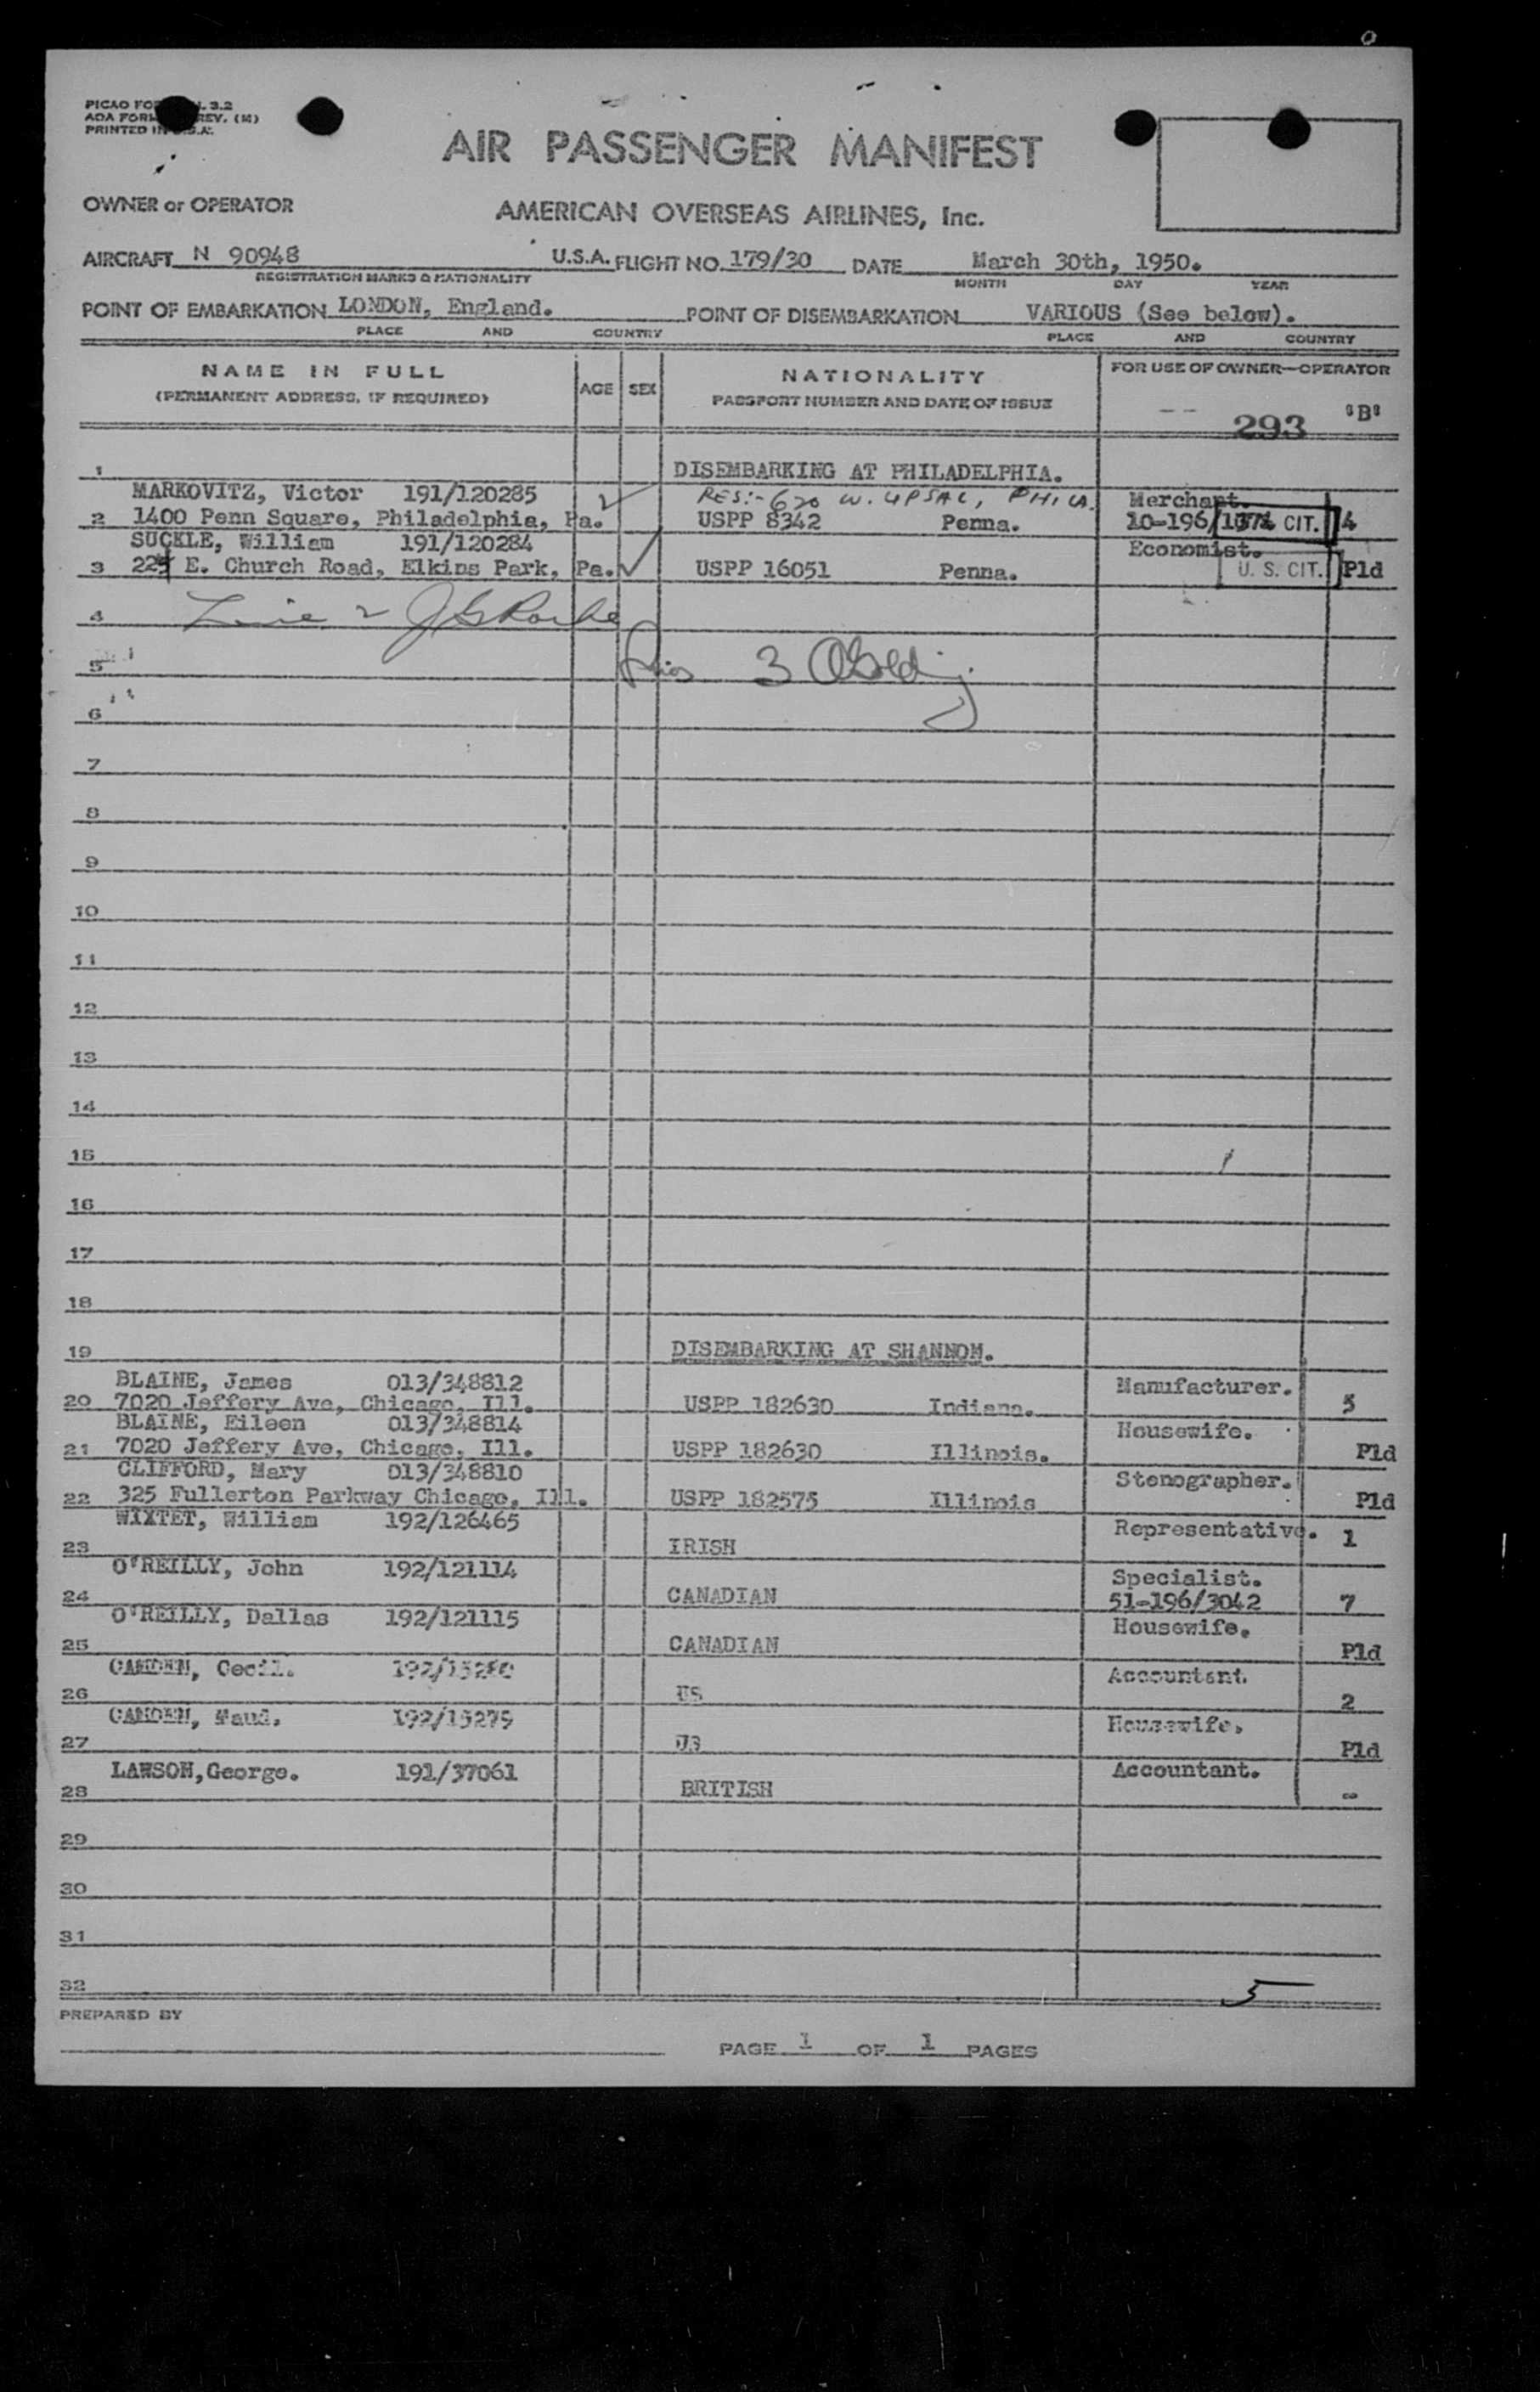 PICAO FO 3.2
AOA FORM REV. (M)
PRINTED IN U.S.A.
AIR PASSENGER MANIFEST
OWNER or OPERATOR AMERICAN OVERSEAS AIRLINES, Inc.
AIRCRAFT N 90948 U.S.A. FLIGHT NO. 179/30 DATE March 30th, 1950.
REGISTRATION MARKS & NATIONALITY MONTH DAY YEAR
POINT OF EMBARKATION LONDON, England. POINT OF DISEMBARKATION VARIOUS (See below).
PLACE AND COUNTRY PLACE AND COUNTRY
NAME IN FULL AGE SEX NATIONALITY FOR USE OF OWNER—OPERATOR
(PERMANENT ADDRESS, IF REQUIRED) PASSPORT NUMBER AND DATE OF ISSUE
-- 293 "B"
1 DISEMBARKING AT PHILADELPHIA.
MARKOVITZ, Victor 191/120285 RES:- 620 W. UPSAL, PHILA. Merchant.
2 1400 Penn Square, Philadelphia, Pa. USPP 8342 Penna. 10-196/ CIT. 4
SUCKLE, William 191/120284 Economist.
3 E. Church Road, Elkins Park, Pa. USPP 16051 Penna. U. S. CIT. Pld
4 Line 2
5 3
6
7
8
9
10
11
12
13
14
15
16
17
18
19 DISEMBARKING AT SHANNON.
BLAINE, James 013/348812 Manufacturer.
20 7020 Jeffery Ave, Chicago, Ill. USPP 182630 Indiana. 5
BLAINE, Eileen 013/348814 Housewife.
21 7020 Jeffery Ave, Chicago, Ill. USPP 182630 Illinois. Pld
CLIFFORD, Mary 013/348810 Stenographer.
22 325 Fullerton Parkway Chicago, Ill. USPP 182575 Illinois Pld
WIXTET, William 192/126465 Representative.
23 IRISH 1
O'REILLY, John 192/121114 Specialist.
24 CANADIAN 51-196/3042 7
O'REILLY, Dallas 192/121115 Housewife.
25 CANADIAN Pld
CAMDEN, Cecil. Accountant.
26 US 2
CAMDEN, Maud. 192/15279 Housewife.
27 US Pld
LAWSON, George. 191/37061 Accountant.
28 BRITISH
29
30
31
32 5
PREPARED BY
PAGE 1 OF 1 PAGES